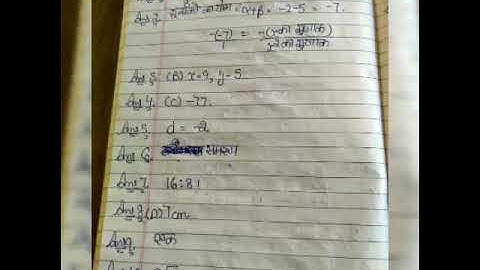 Ans 2. शून्यांको का योग = α+β = -2-5 = -7.
-(-7)/1 = -(x का गुणांक)/x² का गुणांक
Ans 3. (B) x-9, y-5.
Ans 4. (C) -77.
Ans 5. d = -2.
Ans 6. समरूप
Ans 7. 16:81
Ans 8. (D) 7 cm
Ans 9. एक